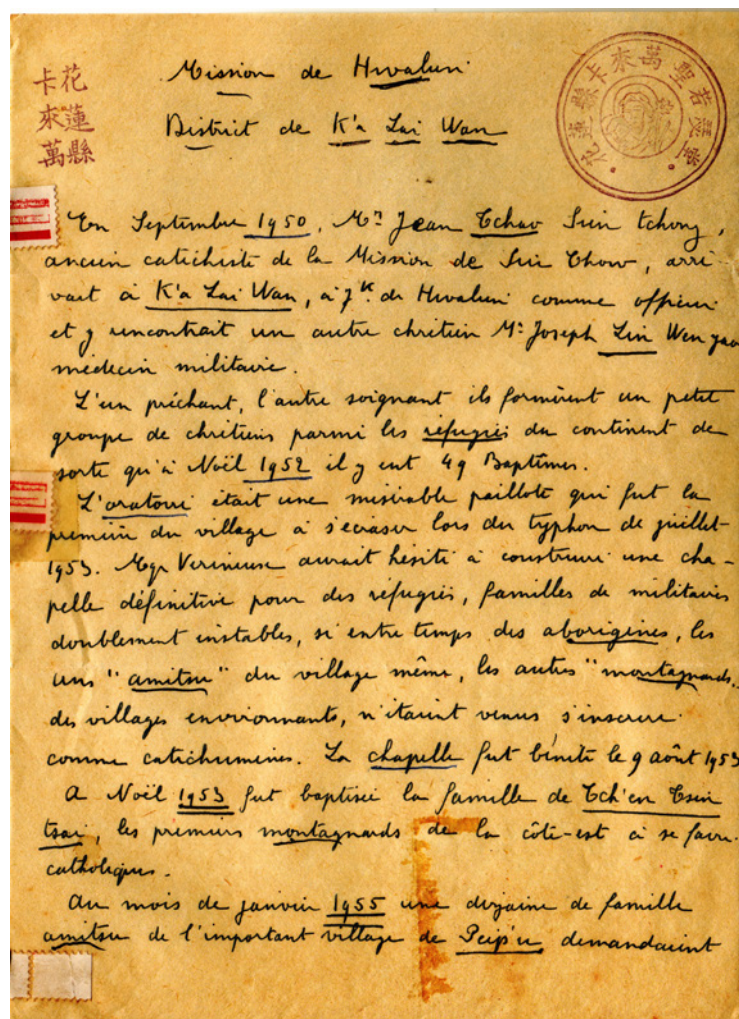 Mission de Hwalien
District de K'a Lai Wan
花蓮縣
卡來萬
花蓮縣卡來萬聖若瑟堂
En Septembre 1950, Mr Jean Tchao Suin tchong,
ancien catéchiste de la Mission de Suin Chow, arri-
vait à K'a Lai Wan, à 7k. de Hwalien comme officier
et y rencontrait un autre chrétien Mr Joseph Lin Wen yao
médecin militaire.
L'un prêchant, l'autre soignant ils formèrent un petit
groupe de chrétiens parmi les réfugiés du continent de
sorte qu'à Noël 1952 il y eut 49 Baptêmes.
L'oratoire était une misérable paillote qui fut la
première du village à s'écraser lors du typhon de juillet
1953. Mgr Verineux aurait hésité à construire une cha-
pelle définitive pour des réfugiés, familles de militaires
doublement instables, si entre temps des aborigènes, les
uns "amitsu" du village même, les autres "montagnards"
des villages environnants, n'étaient venus s'inscrire
comme catéchumènes. La chapelle fut bénite le 9 août 1953
A Noël 1953 fut baptisée la famille de Tch'en Tsin
tsai, les premiers montagnards de la côte-est à se faire
catholiques.
Au mois de janvier 1955 une dizaine de famille
amitsu de l'important village de Peip'u demandaient